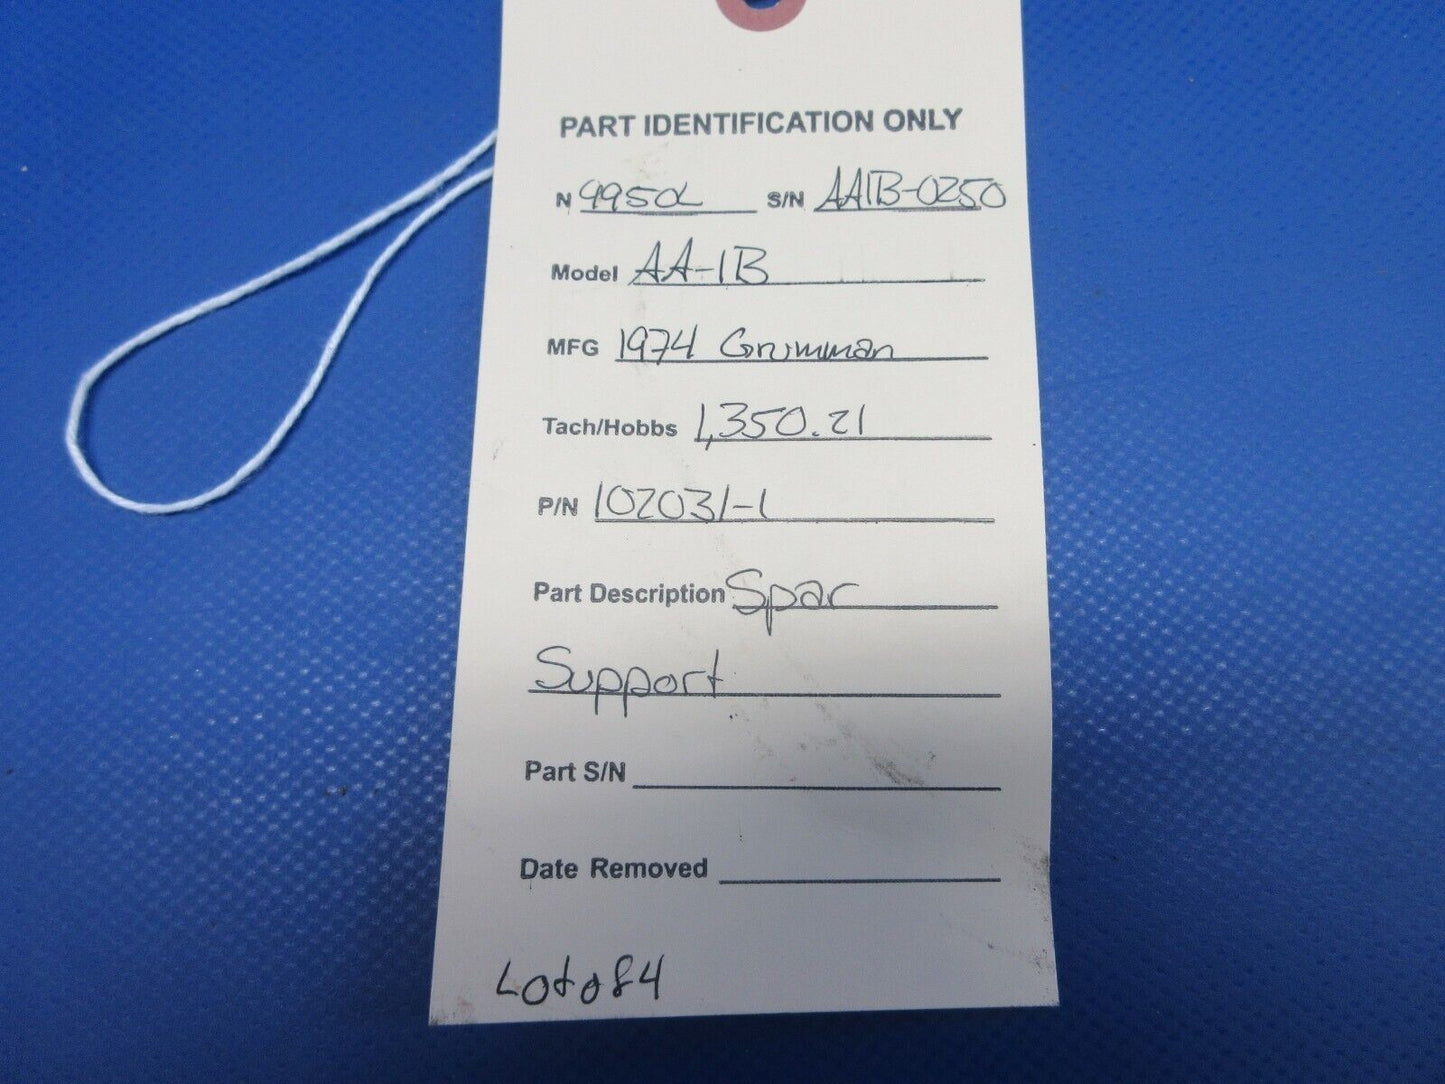 PART IDENTIFICATION ONLY
N 9950L S/N AA1B-0250
Model AA-1B
MFG 1974 Grumman
Tach/Hobbs 1,350.21
P/N 102031-1
Part Description Spar
Support
Part S/N
Date Removed
Lot of 4